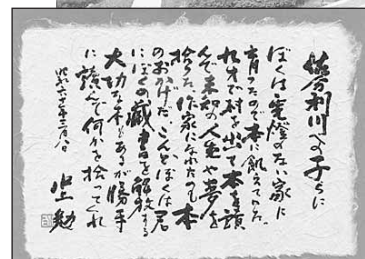 佐分利川べの子らに
ぼくは電燈のない家に
育ったので本に飢えていた。
九才で村を出て本を讀
んで未知の人生や夢を
拾った。作家になれたのも本
のおかげだ。こんどぼくは君
らにぼくの蔵書を解放する
大切な本もあるが勝手
に讀んで何かを拾ってくれ
水上勉